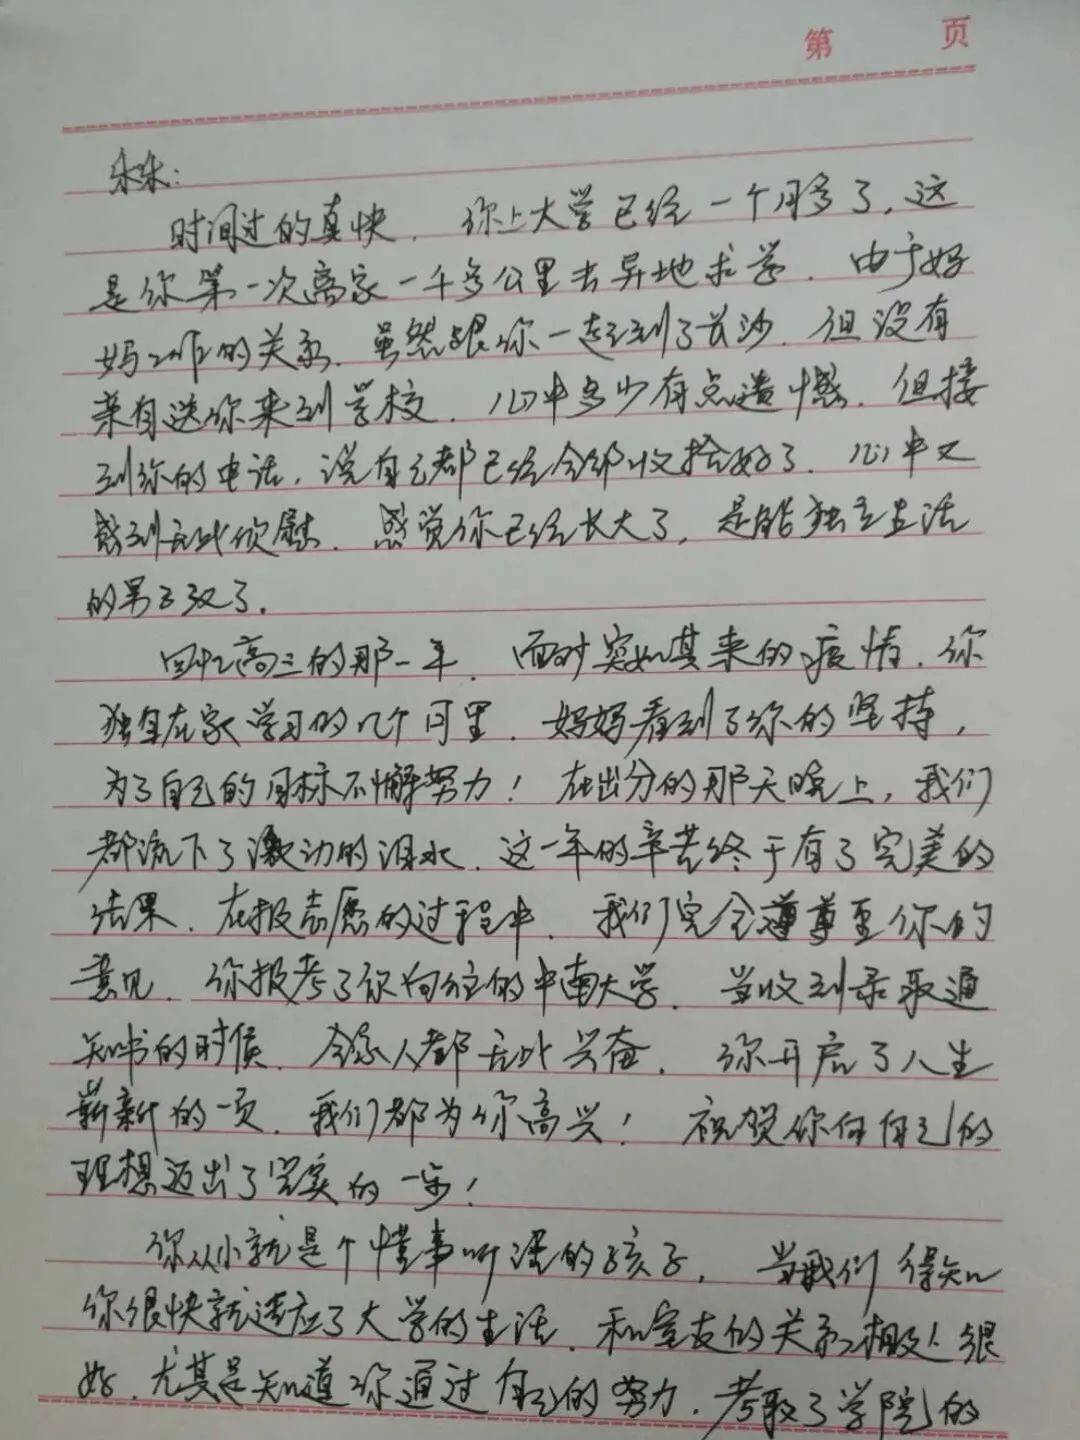 第 页
乐乐:
时间过的真快. 你上大学已经一个月多了, 这
是你第一次离家一千多公里去异地求学. 由于妈
妈工作的关系. 虽然跟你一起到了长沙. 但没有
亲自送你来到学校. 心中多少有点遗憾. 但接
到你的电话, 说自己都已经全部收拾好了. 心中又
感到无比欣慰. 感觉你已经长大了, 是能独立生活
的男子汉了.
回忆高三的那一年. 面对突如其来的疫情. 你
独自在家学习的几个月里. 妈妈看到了你的坚持,
为了自己的目标不懈努力! 在出分的那天晚上, 我们
都流下了激动的泪水. 这一年的辛苦终于有了完美的
结果. 在报志愿的过程中. 我们完全遵尊重你的
意见. 你报考了你向往的中南大学. 当收到录取通
知书的时候. 全家人都无比兴奋. 你开启了人生
崭新的一页. 我们都为你高兴! 祝贺你向自己的
理想迈出了坚实的一步!
你从小就是个懂事听话的孩子. 当我们得知
你很快就适应了大学的生活. 和室友的关系相处很
好. 尤其是知道你通过自己的努力. 考取了学院的